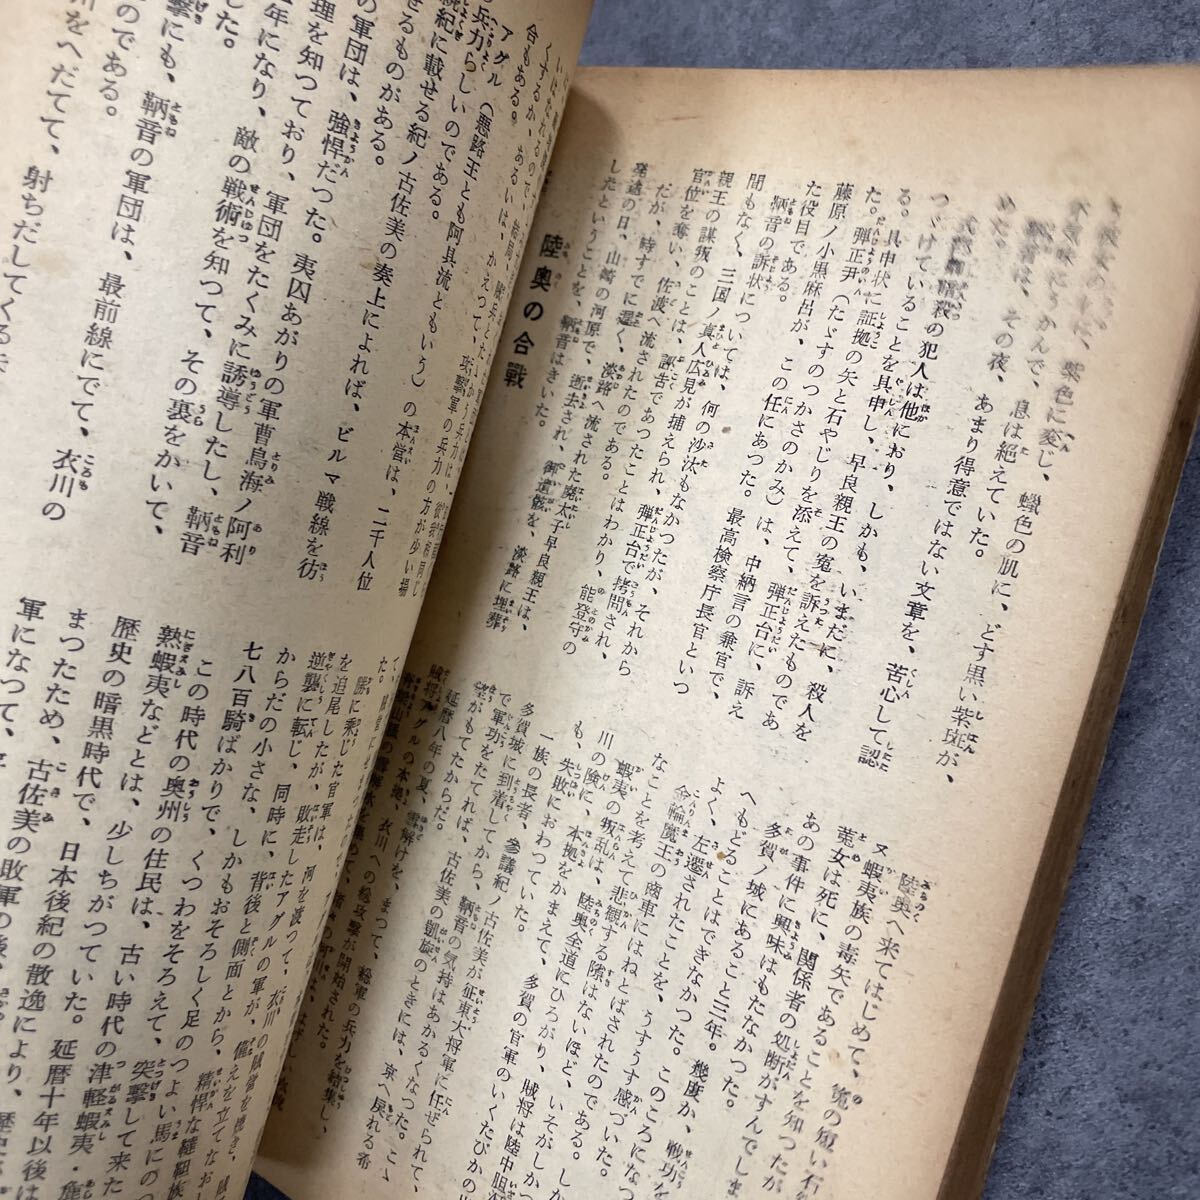 紫色に変し、蠟色の肌に、どす黒い紫斑が、
うかんで、息は絶えていた。
鞆音は、その夜、あまり得意ではない文章を、苦心して認
めた。
暗殺の犯人は他におり、しかも、いまだに、殺人を
つゞけていることを具申し、早良親王の寃を訴えたものであ
る。
具申状に証拠の矢と石やじりを添えて、弾正台に、訴え
た。弾正尹（たゞすのつかさのかみ）は、中納言の兼官で、
藤原ノ小黒麻呂が、この任にあつた。最高検察庁長官といつ
た役目である。
鞆音の訴状については、何の沙汰もなかつたが、それから
間もなく、三国ノ真人広見が捕えられ、弾正台で拷問され、
親王の謀叛のことは、誣告であつたことはわかり、能登守の
官位を奪い、佐渡へ流されたのである。
だが、時すでに遅く、淡路へ流された廃太子早良親王は、
発途の日、山崎の河原で、逝去され、御遺骸を、淡路に埋葬
したということを、鞆音はきいた。
陸奥の合戦
陸奥へ来てはじめて、寃の短い石
又、蝦夷族の毒矢であることを知つたが
菟女は死に、関係者の処断がすんでしま
あの事件に興味はもたなかつた。
多賀ノ城にあること三年。幾度か、戦功を
へもどることはできなかつた。このころになつ
よく、左遷されたことを、うすうす感づいた。
金輪魔王の南車にはねとばされたのである。しか
なことを考えて悲観する隙はないほど、いそがしかつ
蝦夷の叛乱は、陸奥全道にひろがり、賊将は陸中胆
川の険に、本拠をかまえて、多賀の官軍のいくたびかの
も、失敗におわつていた。
一族の長者、参議紀ノ古佐美が征東大将軍に任ぜられて、
多賀城に到着してから、鞆音の気持はあかるくなつた。こ
で軍功をたてれば、古佐美の凱旋のときには、京へ戻れる希
望がもてたからだ。
延暦八年の夏、雪解けを、まつて、総軍の兵力を結集し、
賊将アグルの本拠、衣川への総攻撃が開始された。
くするか、あるいは、結局、
合もある。
アグル（悪路王とも阿具流ともいう）の本営は、二千人位
の兵力らしいのである。かえつて、攻撃軍の兵力の方が少い場
紀に載せる紀ノ古佐美の奏上によれば、ビルマ戦線を彷
せるものがある。
の軍団は、強悍だつた。夷囚あがりの軍曹鳥海ノ阿利
理を知つており、軍団をたくみに誘導したし、鞆音
年になり、敵の戦術を知つて、その裏をかいて、
た。
撃にも、鞆音の軍団は、最前線にでて、衣川の
のである。
川をへだてて、射ちだしてくる矢
勝に乗じた官軍は、河を渡つて、衣川の賊営を焼き、
を追尾したが、敗走したアグルの軍が、備えを立てなおし
逆襲に転じ、同時に、背後と側面とから、精悍な韃靼族
からだの小さな、しかもおそろしく足のつよい馬にのつ
七八百騎ばかりで、くつわをそろえて、突撃して来た
この時代の奥州の住民は、古い時代の津軽蝦夷・麁
熟蝦夷などとは、少しちがつていた。延暦十年以後は
歴史の暗黒時代で、日本後紀の散逸により、歴史
まつたため、古佐美の敗軍の後、
軍になつて、